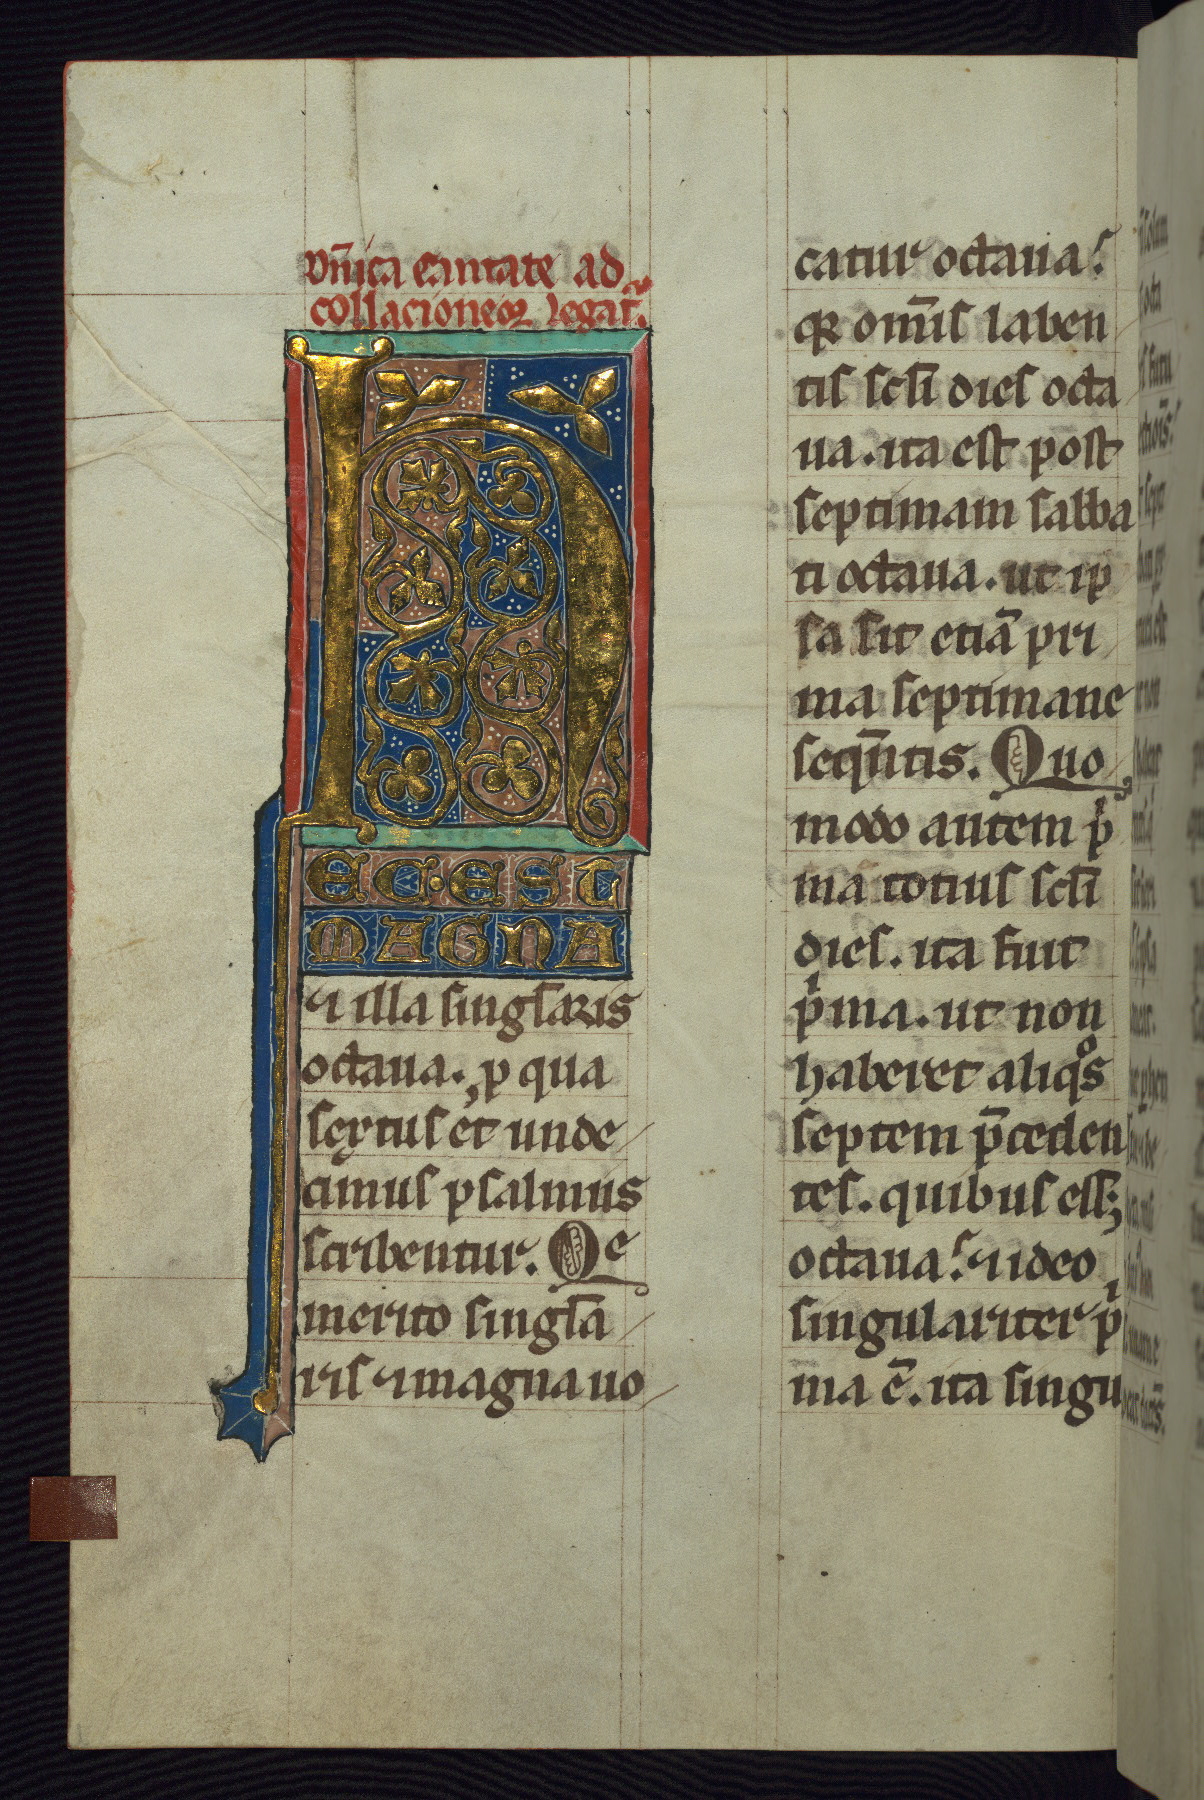 Dn̄ica cantate ad
collacioneꝫ legat᷑.
H
EC·EST
MAGNA
⁊ illa singl̄aris
octaua. p qua
sextus et unde
cimus psalmus
scribentur. Qe
merito singl̄a
ris ⁊ magna uo
catur octaua.
qꝛ om̄is laben
tis scl̄i dies octa
ua. ita est post
septimam sabba
ti octaua. ut ip
sa sit etiā pri
ma septimane
seqn̄tis. Quo
modo autem pⁱ
ma totius scl̄i
dies. ita fuit
pⁱma. ut non
haberet aliqºs
septem p̄ceden
tes. quibus ess;
octaua. ⁊ ideo
singulariter pⁱ
ma ē. ita singu